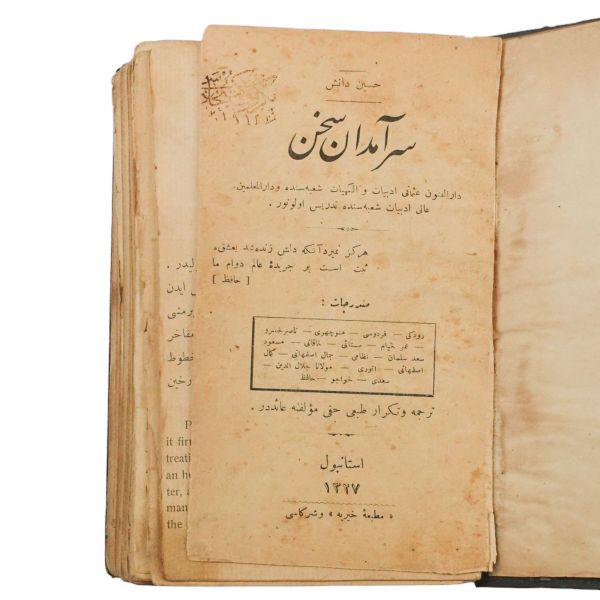 حسين دانش
سرآمدان سخن
دار الفنون عثمانی ادبيات و الٓهيات شعبه سنده ودار المعلمين
عالی ادبيات شعبه سنده تدريس اولونور .
هرگز نميرد آنكه دلش زنده شد بعشق
ثبت است بر جريدهٔ عالم دوام ما
[ حافظ ]
مندرجات :
رودكی — فردوسی — منوچهری — ناصر خسرو
— عمر خيام — سنائی — خاقانی — مسعود
سعد سلمان — نظامی — جمال اصفهانی — كمال
اصفهانی — انوری — مولانا جلال الدين —
سعدی — خواجو — حافظ
ترجمه و تكرار طبعی حقی مؤلفنه عائددر .
استانبول
١٣٢٧
« مطبعهٔ خيريه » وشركاسی
ليدر .
ايدن
مفاخر
خطوط
رخين
P
it firm
treati
an he
ter, a
man
the